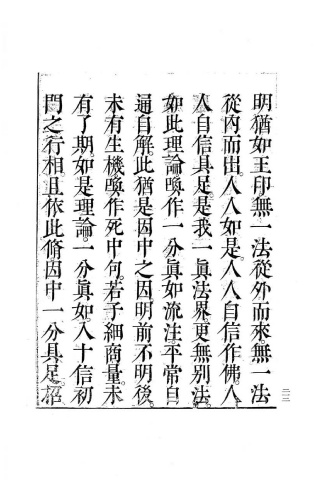 明猶如王印無一法從外而來無一法
從內而出人人如是人人自信作佛人
人自信具足是我一眞法界更無别法
如此理論喚作一分眞如流注平常自
通自解此猶是因中之因明前不明後
未有生機喚作死中句若子細商量未
有了期如是理論一分眞如入十信初
門之行相且依此脩因中一分具足招
二三